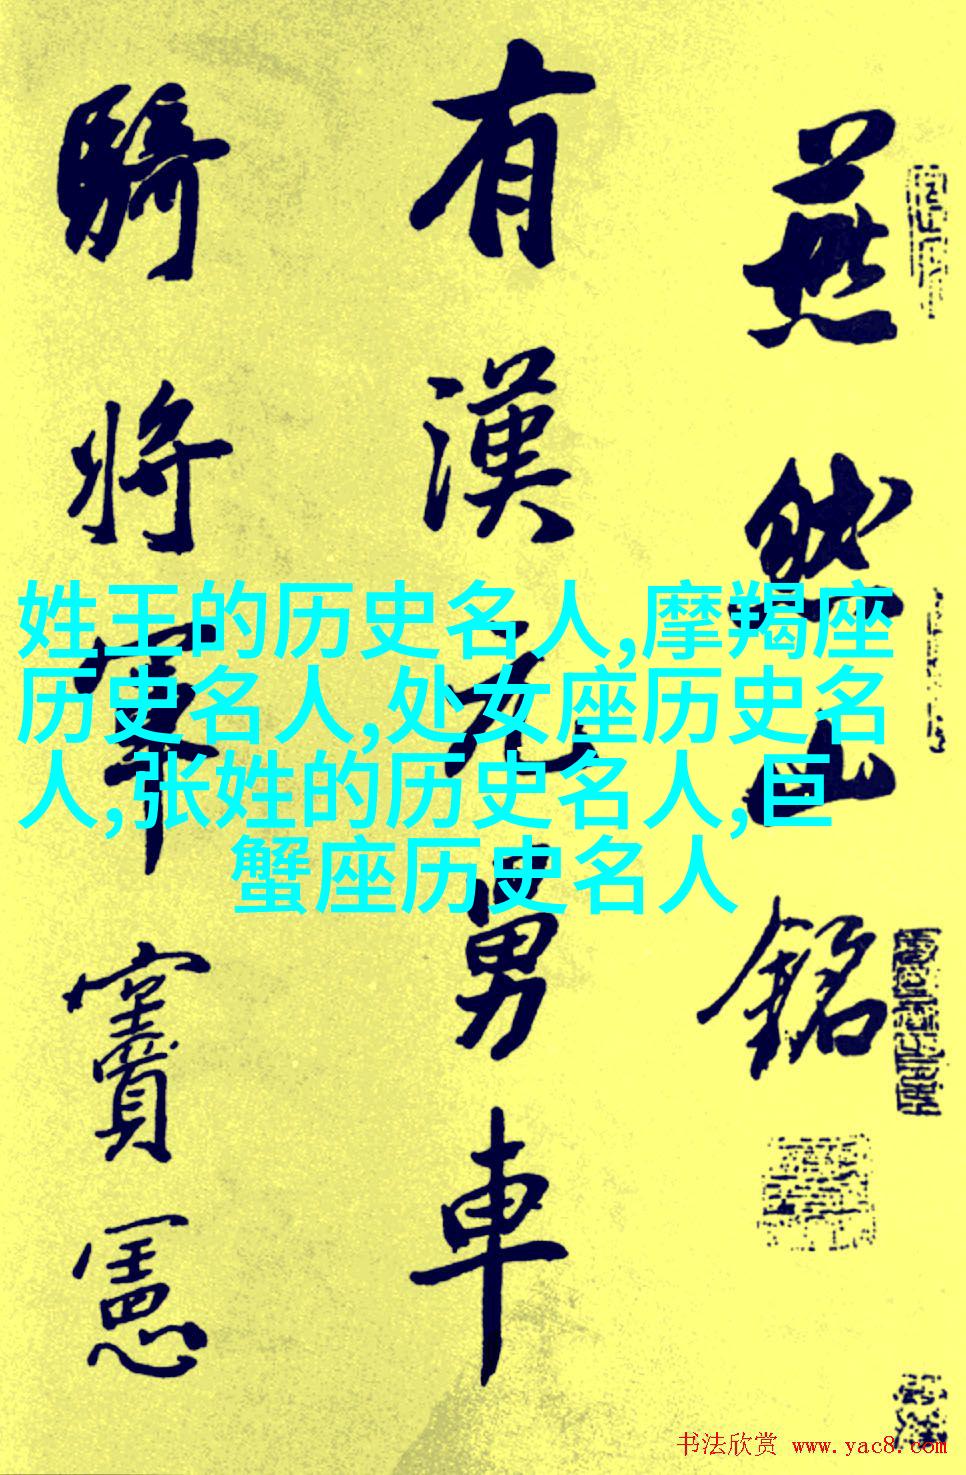 燕然山銘
有漢元舅車
騎將軍竇憲
姓王的历史名人,摩羯座
历史名人,处女座历史名
人,张姓的历史名人,巨
蟹座历史名人
书法欣赏 www.yac8.com